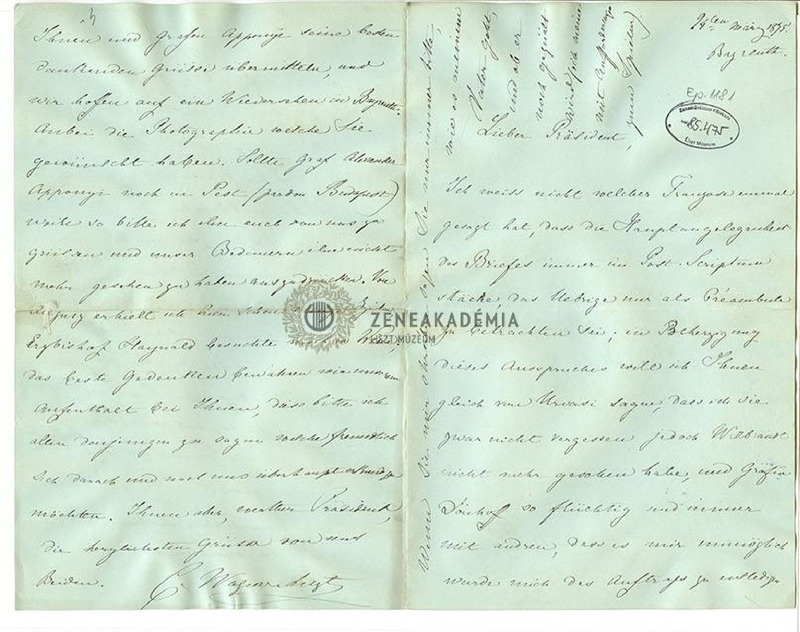 24ten März 1875.
Bayreuth.
Ep. 1181
85.475
Liszt Múzeum
Lieber Präsident,
Ich weiss nicht welcher Franzose einmal
gesagt hat, dass die Hauptangelegenheit
des Briefes immer im Post-Scriptum
stäcke, das Uebrige nur als Préambule
zu betrachten sei; in Beherzigung
dieses Ausspruches will ich Ihnen
gleich von Urvasi sagen, dass ich sie
zwar nicht vergessen jedoch Wilbrandt
nicht mehr gesehen habe, und Gräfin
Dönhof so flüchtig und immer
mit andren, dass es mir unmöglich
wurde mich des Auftrags zu entledigen
Ihnen und Grafen Apponyi seine besten
dankenden Grüsse übermitteln, und
wir hoffen auf ein Wiedersehen in Bayreuth.
Anbei die Photographie welche Sie
gewünscht haben. Sollte Graf Alexander
Apponyi noch in Pest (pardon Budapest)
weile so bitte ich ihn auch von uns zu
grüssen und unser Bedauern ihn nicht
mehr gesehen zu haben auszudrücken. Von
erhielt ich
Erzbischof Haynald besuchte
das beste Gedenken bewahren wir
Aufenthalt bei Ihnen, dass bitte ich
allen denjenigen zu sagen welche freundlich
sich darnach und nach uns überhaupt erkundigen
möchten. Ihnen aber, Präsident,
die herzlichsten Grüsse von uns
Beiden.
C. Wagner-Liszt
Sie nur immer bitte,
wie es meinem
Vater geht,
und ob er
noch
ZENEAKADÉMIA
LISZT MÚZEUM